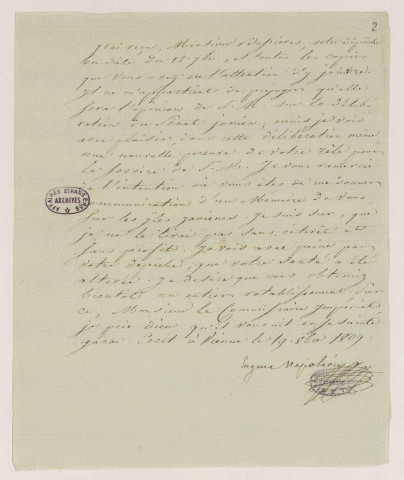 2
J'ai reçu, Monsieur Bessières, votre dépêche
en date du 12. 7bre, et toutes les copies
que vous avez eu l'attention d'y joindre.
Il ne m'appartient de préjuger qu'elle
sera l'opinion de S. M. sur la délibé-
ration du Sénat jonien; mais je vois
avec plaisir dans cette délibération même
une nouvelle preuve de votre zèle pour
le service de S. M. Je vous remercie
de l'intention où vous êtes de me donner
communication d'un Mémoire de vous,
sur les jsles joniènes. Je suis sûr, que
je ne le lirai pas sans intérêt et
sans profit. Je vois avec peine par
votre dépêche, que votre santé a été
altérée. Je désire que vous obteniez
bientôt un entier rétablissement. Sur
ce, Monsieur le Commissaire Impérial
je prie Dieu qu'il vous ait en sa sainte
garde. Ecrit à Vienne le 19. 8bre 1809.
Eugène Napoléon
AFFAIRES ETRANGERES
ARCHIVES